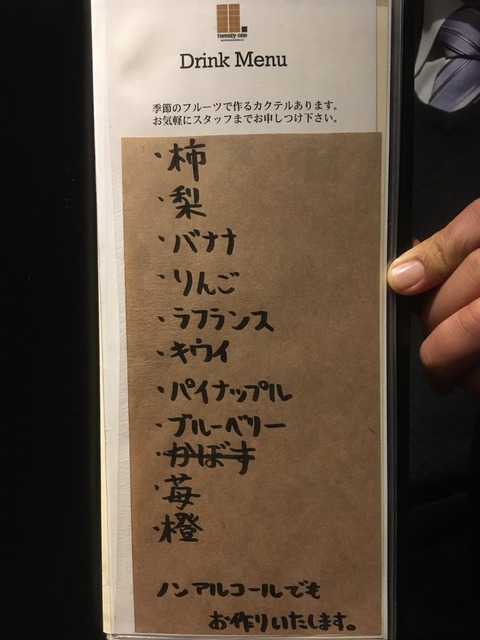 twenty one
Drink Menu
季節のフルーツで作るカクテルあります。
お気軽にスタッフまでお申しつけ下さい。
・柿
・梨
・バナナ
・りんご
・ラフランス
・キウイ
・パイナップル
・ブルーベリー
・かぼす
・苺
・橙
ノンアルコールでも
お作りいたします。